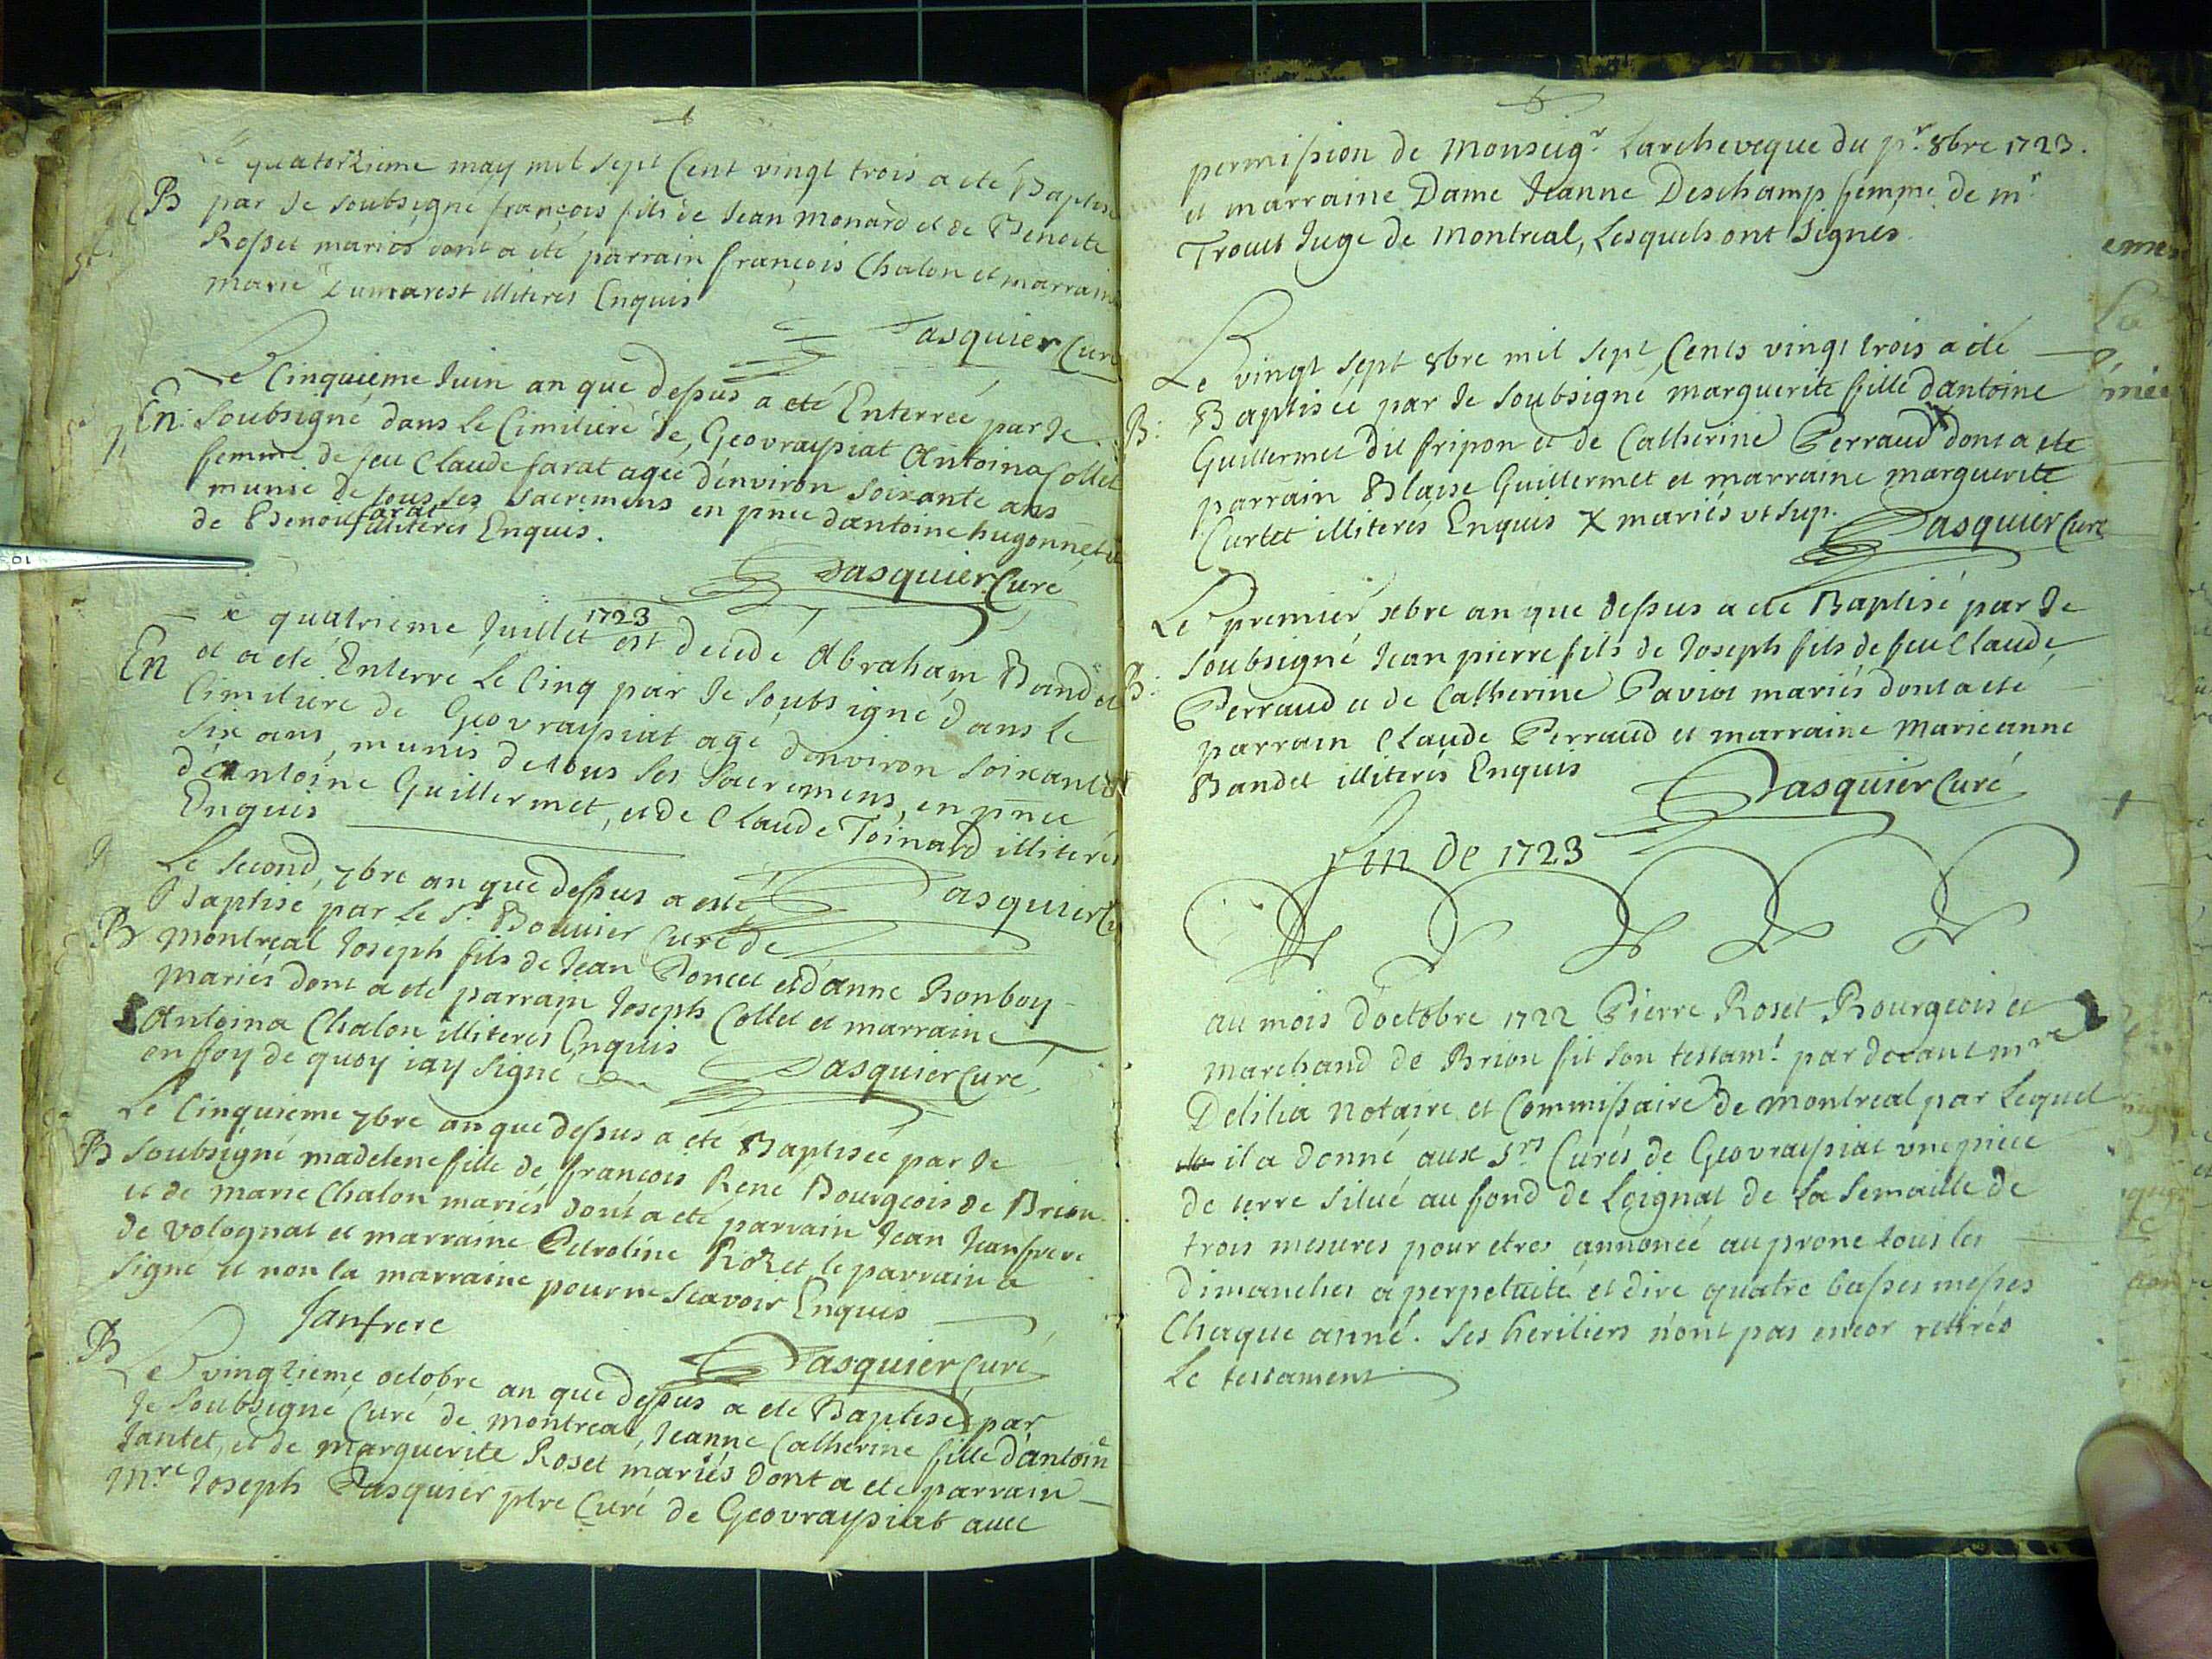 Le quatorzieme may mil sept Cent vingt trois a eté Baptisé
B par Je soubsigné françois fils de Jean monard et de Benoite
Rosset mariés dont a eté parrain françois Chalon et marraine
marie Dumarest illiterés Enquis
Pasquier Curé
Le Cinquieme Juin an que dessus a eté Enterreé par Je
En: soubsigné dans le Cimitiere de Geovraysiat Antoina Collet
femme de feu Claude farat ageé d'environ soixante ans
munie de tous ses sacremens en pnce dantoine hugonnet et
de Benoit farat illiterés Enquis.
Pasquier Curé
1723
Le quatrieme Juillet est decedé Abraham Bandet
En et a eté Enterré le Cinq par Je soubsigné dans le
Cimitiere de Geovraysiat agé denviron soixante
six ans, munis de tous ses sacremens, en pnce
d'Antoine Guillermet, et de Claude Toinard illiterés
Enquis
Pasquier Cu
Le second 7bre an que dessus a esté
Baptisé par le Sr. Bouvier Curé de
B montreal Joseph fils de Jean Poncet et d'anne Ronboy
mariés dont a eté parrain Joseph Collet et marraine
Antoina Chalon illiterés Enquis
en foy de quoy iay signé
Pasquier Curé
Le Cinquieme 7bre an que dessus a eté Baptiseé par Je
B soubsigné madelene fille de francois René Bourgeois de Brion
et de marie Chalon mariés dont a eté parrain Jean Janfrere
de volognat et marraine Petroline Rozet le parrain a
signé et non la marraine pour ne scavoir Enquis
Janfrere
Pasquier Curé
B Le vingtieme octobre an que dessus a eté Baptiseé par
Je soubsigné Curé de montreal, Jeanne Catherine fille d'antoine
Jantet, et de marguerite Roset mariés dont a eté parrain
Mre Joseph Pasquier ptre Curé de Geovraysiat avec
permission de Monseigr Larcheveque du pr. 8bre 1723.
et marraine Dame Jeanne Deschamp femme de mr
Trouet Juge de montreal, Lesquels ont signés
Le vingt sept 8bre mil sept Cents vingt trois a eté
B: Baptiseé par Je soubsigné marguerite fille dantoine
Guillermet dit fripon et de Catherine Perraud X dont a eté
parrain Blaise Guillermet et marraine marguerite
Curtet illiterés Enquis X mariés ut sup.
Pasquier Curé
Le premier xbre an que dessus a eté Baptisé par Je
B: soubsigné Jean pierre fils de Joseph fils de feu Claude
Perraud et de Catherine Paviot mariés dont a eté
parrain Claude Perraud et marraine Marie anne
Bandet illiterés Enquis
Pasquier Curé
fin de 1723
au mois d'octobre 1722 Pierre Roset Bourgeois et
marchand de Brion fit son testamt. par devant mre
Delilia Notaire et Commissaire de montreal par Lequel
il a donné aux Srs Curés de Geovraysiat une piece
de terre situé au fond de Loignat de la semaille de
trois mesures pour etres annonceé au prone tous les
dimanches a perpetuité et dire quatre basses messes
Chaque anné. ses heritiers n'ont pas encor retirés
Le testament